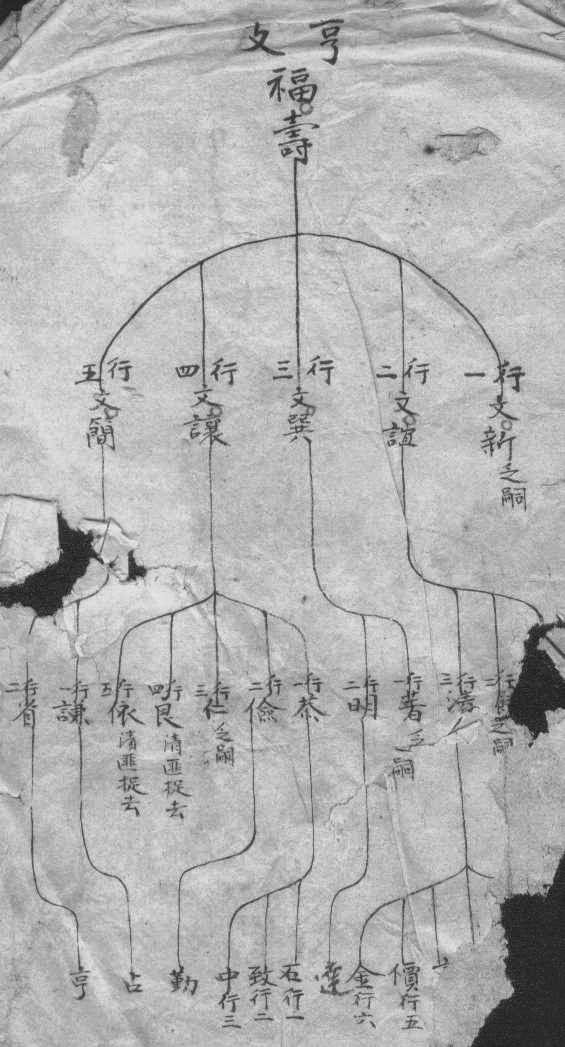 亨
攴
福壽
行一 文新 乏嗣
行二 文誼
行三 文巽
行四 文讓
行五 文簡
行二
乏嗣
行三
行一 著 乏嗣
行二 明
行一 恭
行二 儉
行三 仁 乏嗣
行四 良 清匪捉去
行五 依 清匪捉去
行一 謙
行二 省
價行五
金行六
達
石行一
致行二
中行三
勤
占
亨